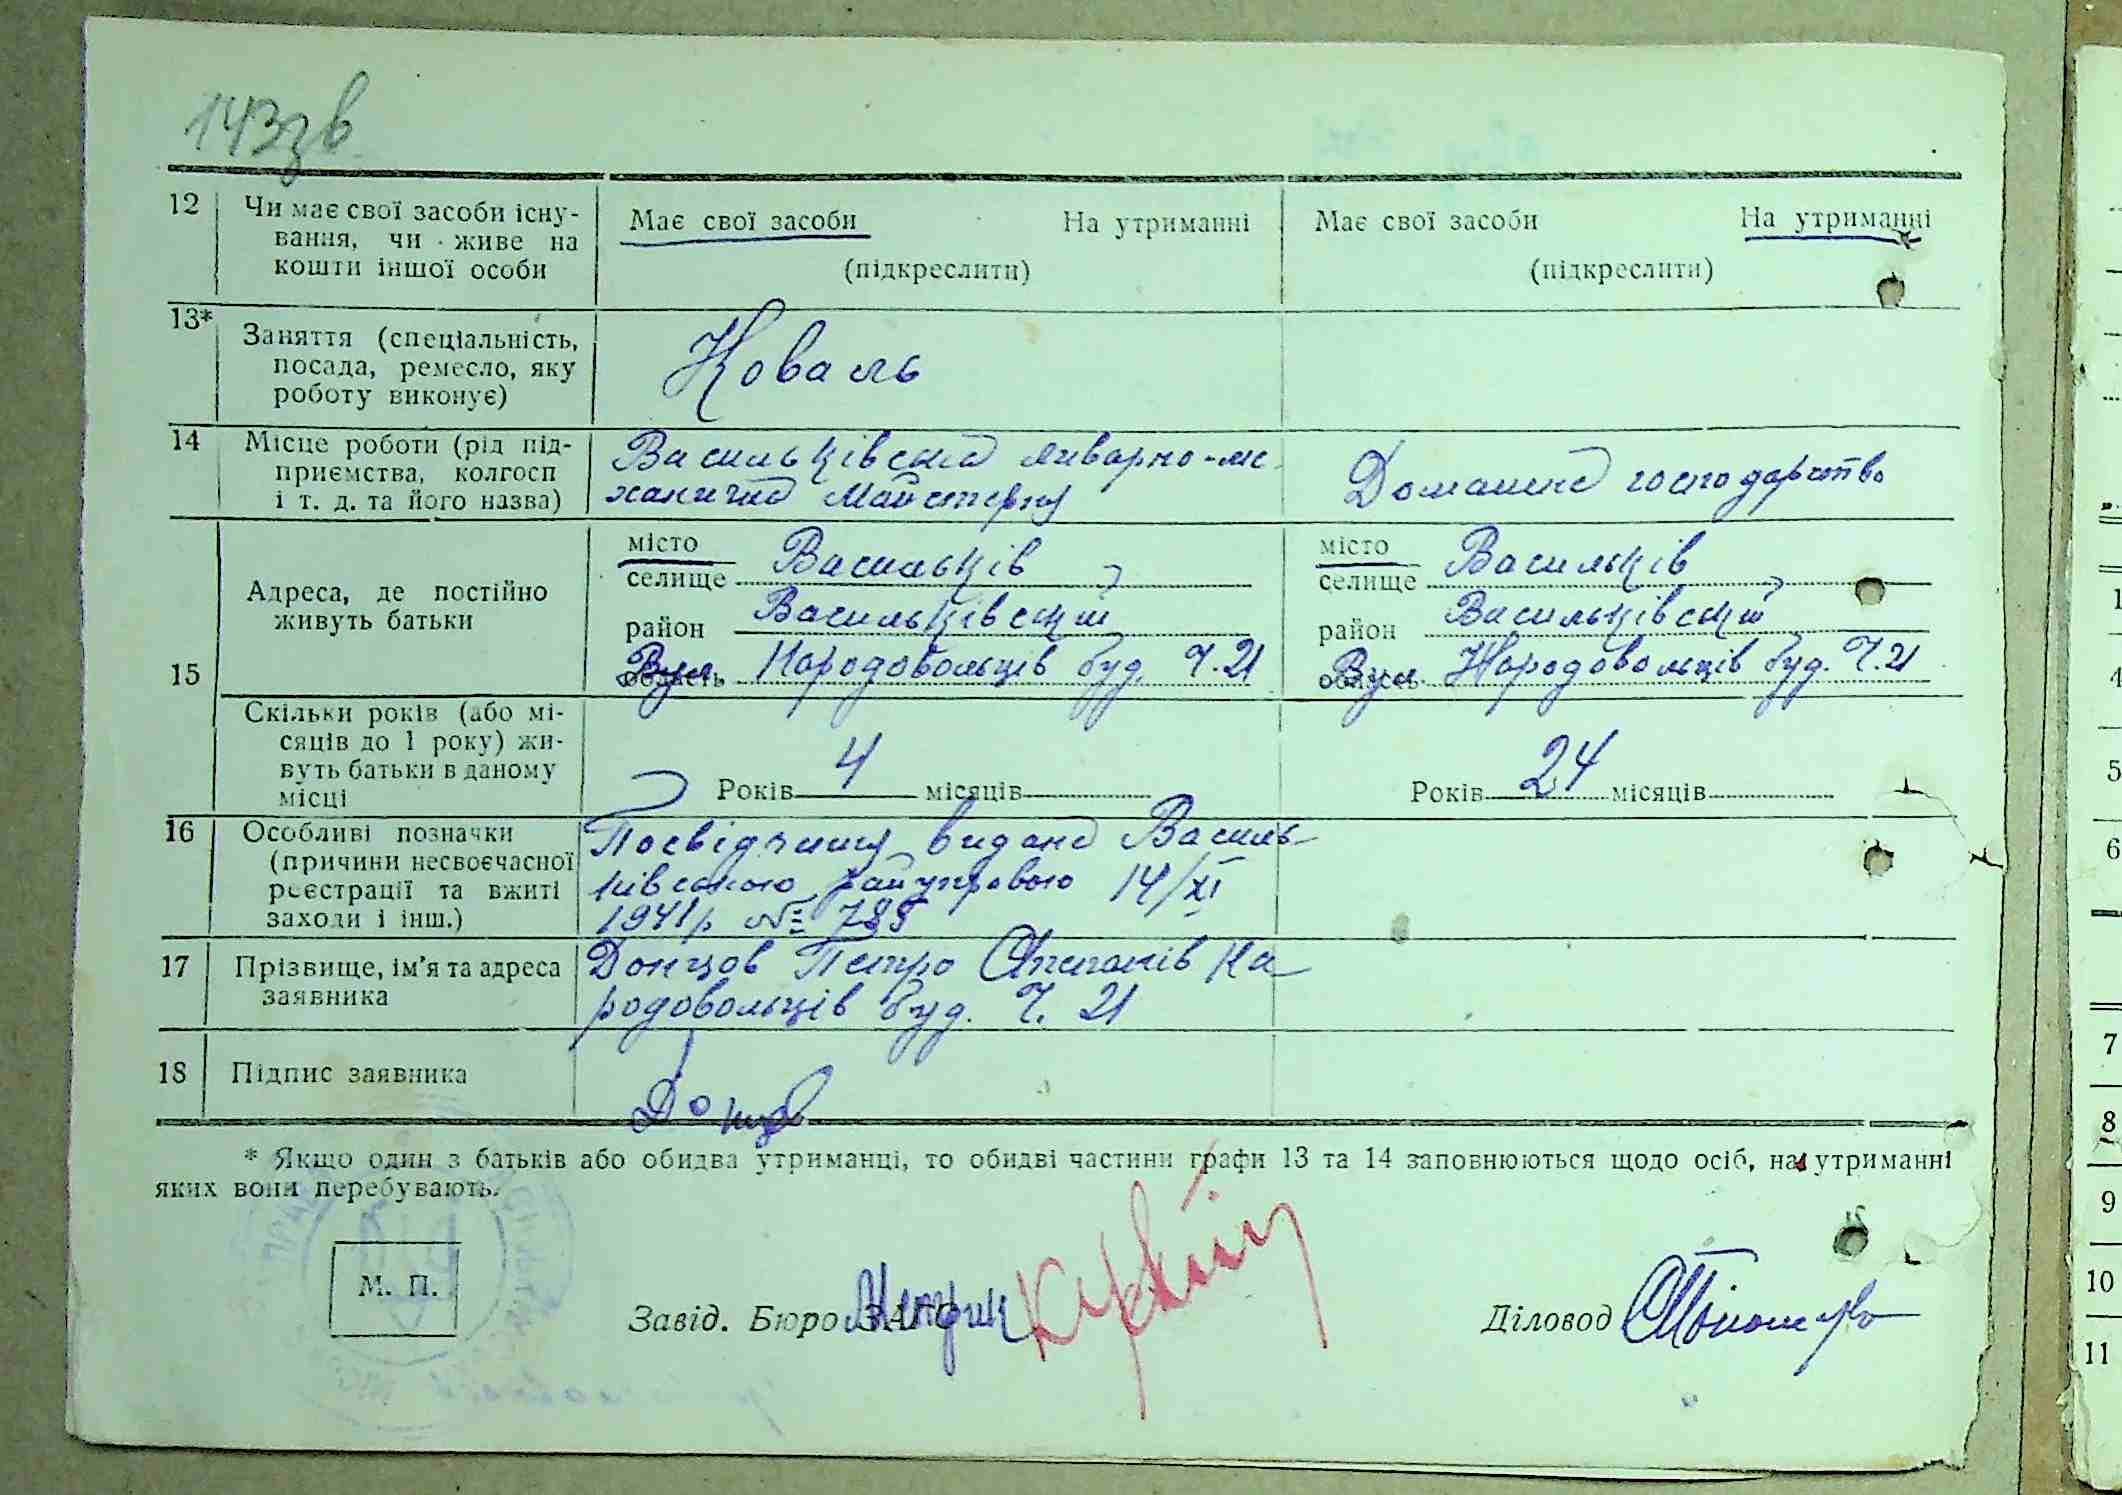 143зв
12 Чи має свої засоби існу- Має свої засоби На утриманні Має свої засоби На утриманні
вання, чи живе на
кошти іншої особи (підкреслити) (підкреслити)
13* Заняття (спеціальність, Коваль
посада, ремесло, яку
роботу виконує)
14 Місце роботи (рід під- Васильківська ливарно-ме- Домашнє господарство
приємства, колгосп ханична Майстерня
і т. д. та його назва)
15 Адреса, де постійно живуть батьки
місто Васильків місто Васильків
селище селище
район Васильківський район Васильківський
область Вул. Народовольців буд. Ч. 21 область Вул. Народовольців буд. Ч. 21
Скільки років (або мі-
сяців до 1 року) жи-
вуть батьки в даному Років 4 місяців Років 24 місяців
місці
16 Особливі позначки Посвідчення видане Василь-
(причини несвоєчасної ківською райуправою 14/XI
реєстрації та вжиті 1941р №
заходи і інш.)
17 Прізвище, ім'я та адреса Донцов Петро На-
заявника родовольців буд. Ч. 21
18 Підпис заявника Донцов
* Якщо один з батьків або обидва утриманці, то обидві частини графи 13 та 14 заповнюються щодо осіб, на утриманні
яких вони перебувають.
М. П.
Завід. Бюро ЗАГС Діловод